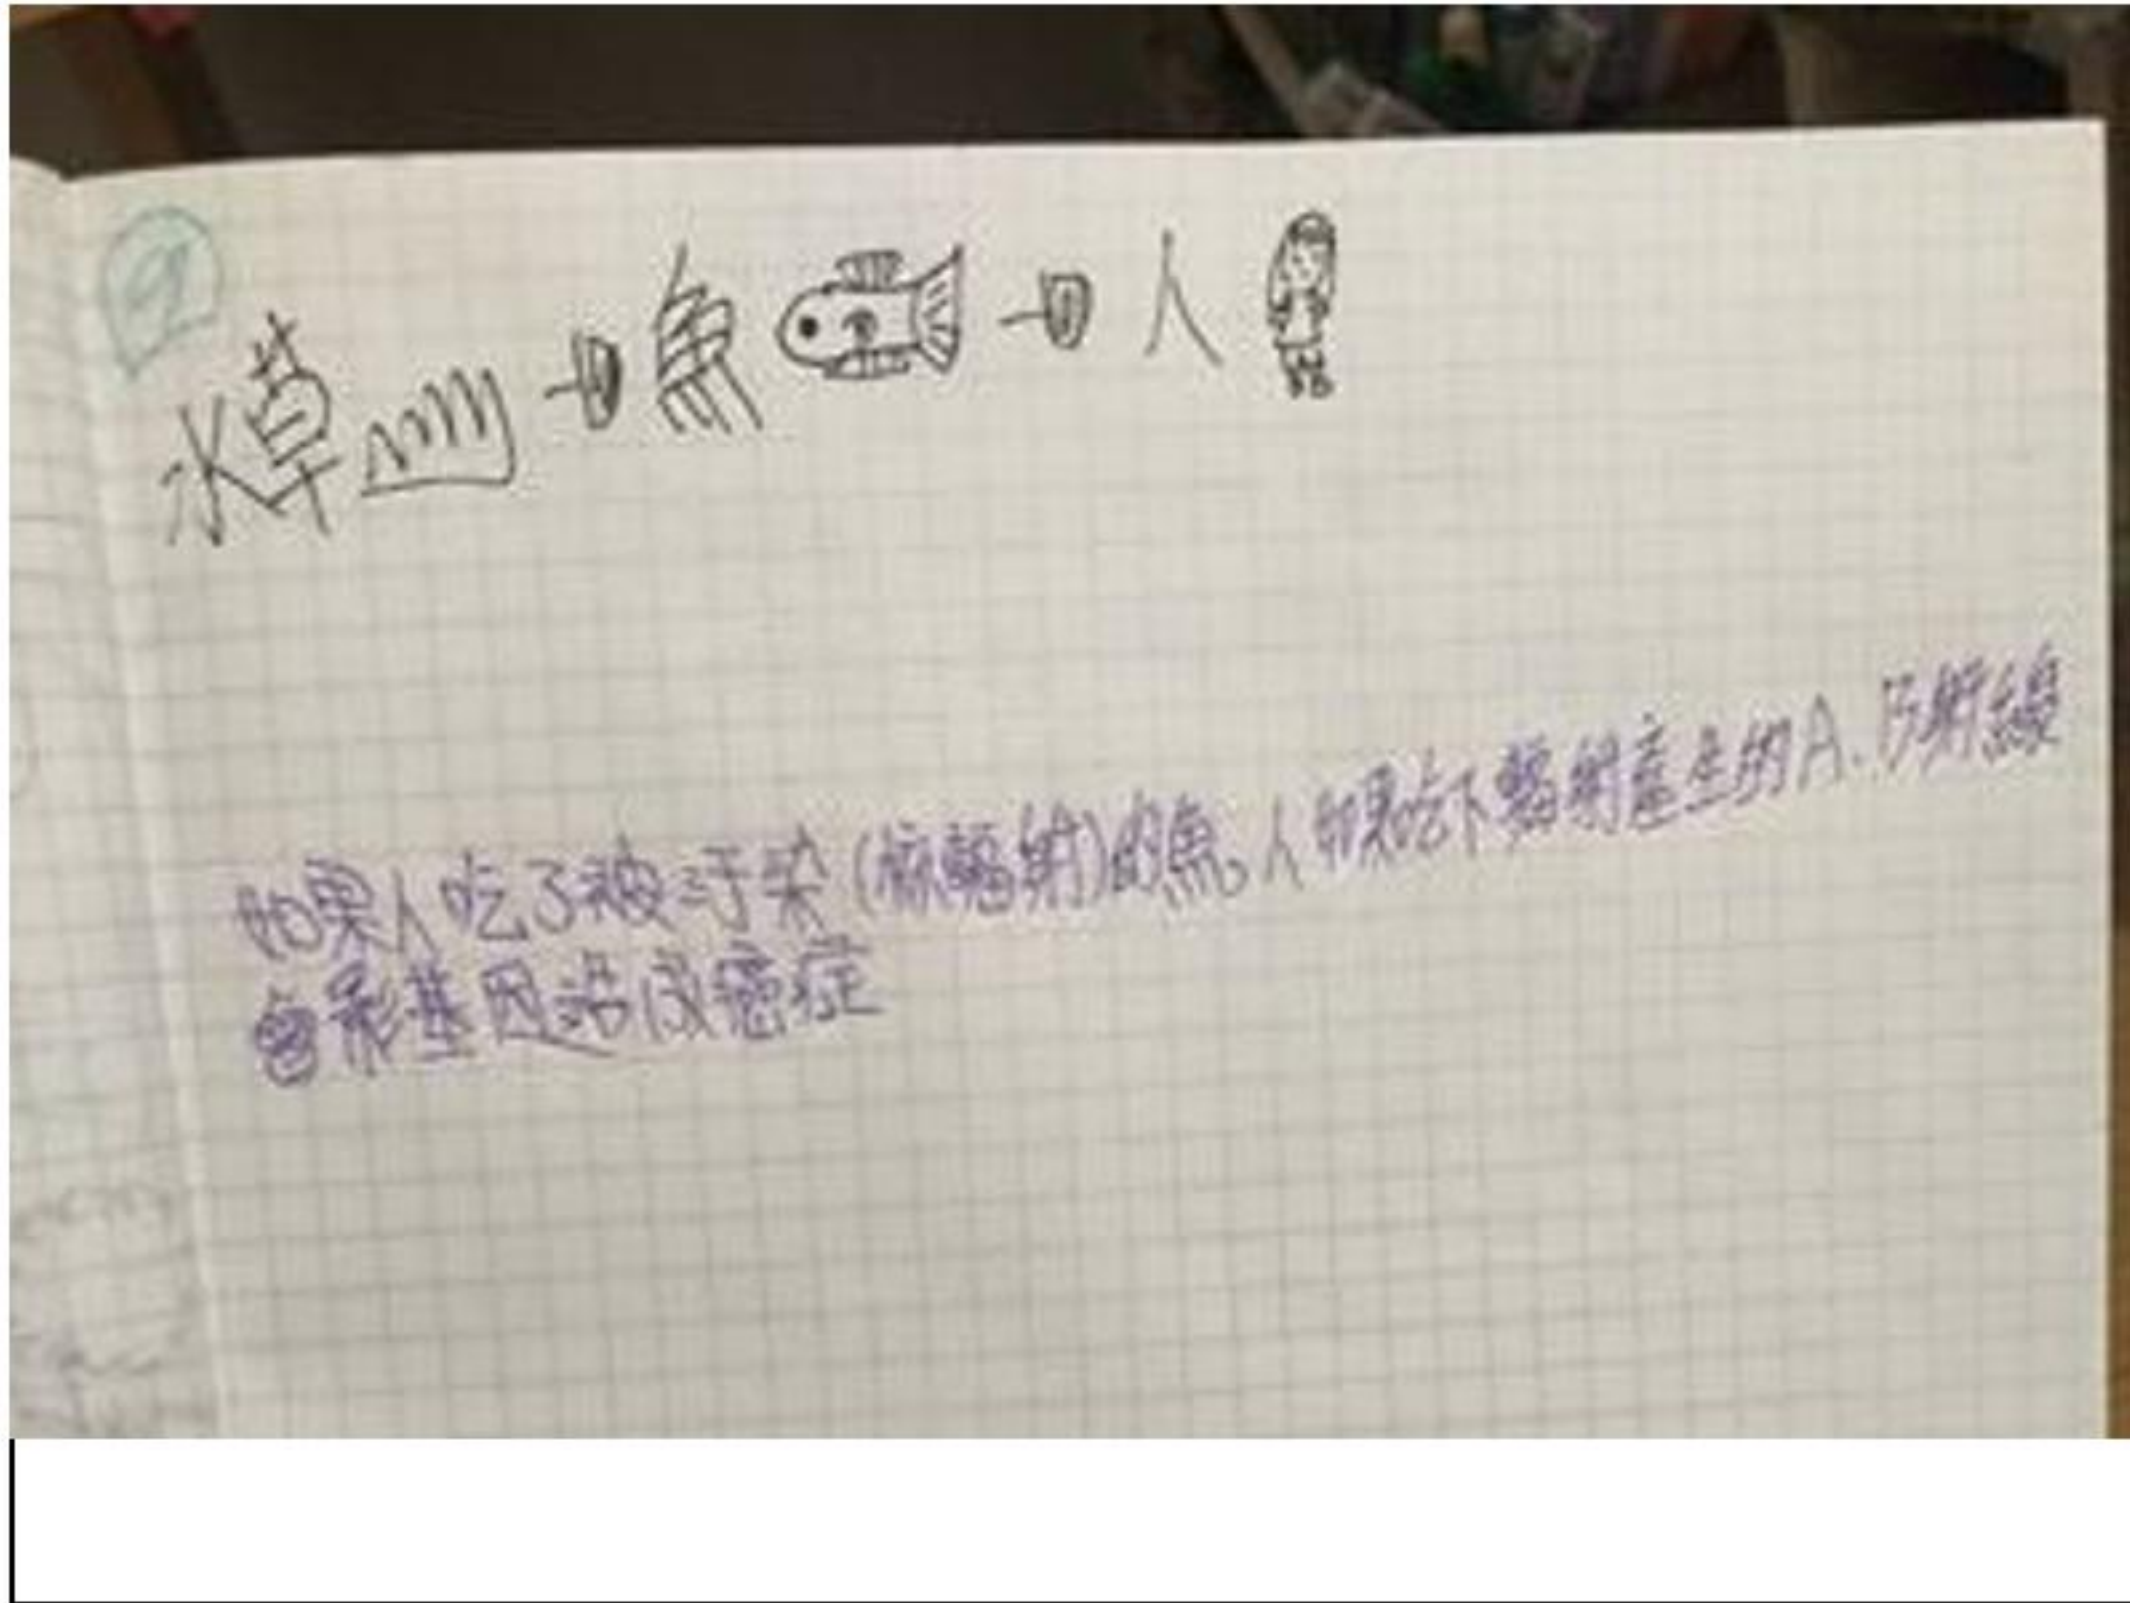 水草 魚 人
如果人吃了被汙染(核輻射)的魚。人如果吃下輻射產生的A、B射線
會影基因造成癌症